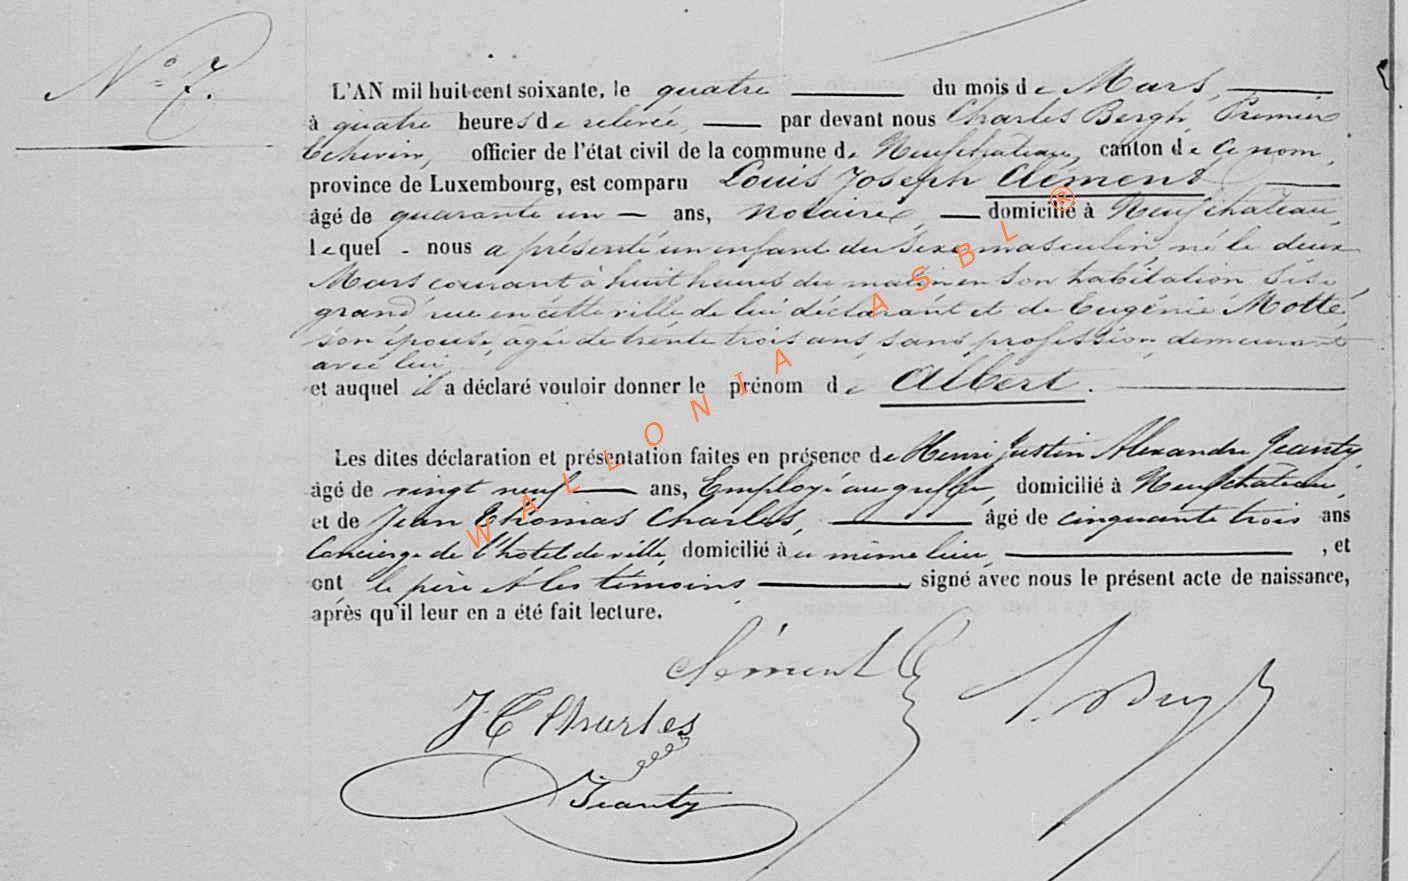 N° 7.
L'AN mil huit-cent soixante, le quatre du mois de Mars,
à quatre heures de relevée, par devant nous Charles Bergh, Premier
Echevin, officier de l'état civil de la commune de Neufchateau, canton de ce nom,
province de Luxembourg, est comparu Louis Joseph Clement
âgé de quarante un ans, notaire, domicilié à Neufchateau,
lequel nous a présenté un enfant du sexe masculin, né le deux
Mars courant à huit heures du matin en son habitation sise
grand'rue en cette ville de lui déclarant et de Eugénie Motte,
son épouse, agée de trente trois ans, sans profession, demeurant
avec lui,
et auquel il a déclaré vouloir donner le prénom de Albert.
Les dites déclaration et présentation faites en présence de Henri Justin Alexandre Jeanty,
âgé de vingt neuf ans, Employé au greffe, domicilié à Neufchateau,
et de Jean Thomas Charles, âgé de cinquante trois ans
Concierge de l'hotel de ville, domicilié à ce même lieu, , et
ont le père et les témoins signé avec nous le présent acte de naissance,
après qu'il leur en a été fait lecture.
Clément
J. T. Charles
Jeanty
WALLONIA ASBL ®